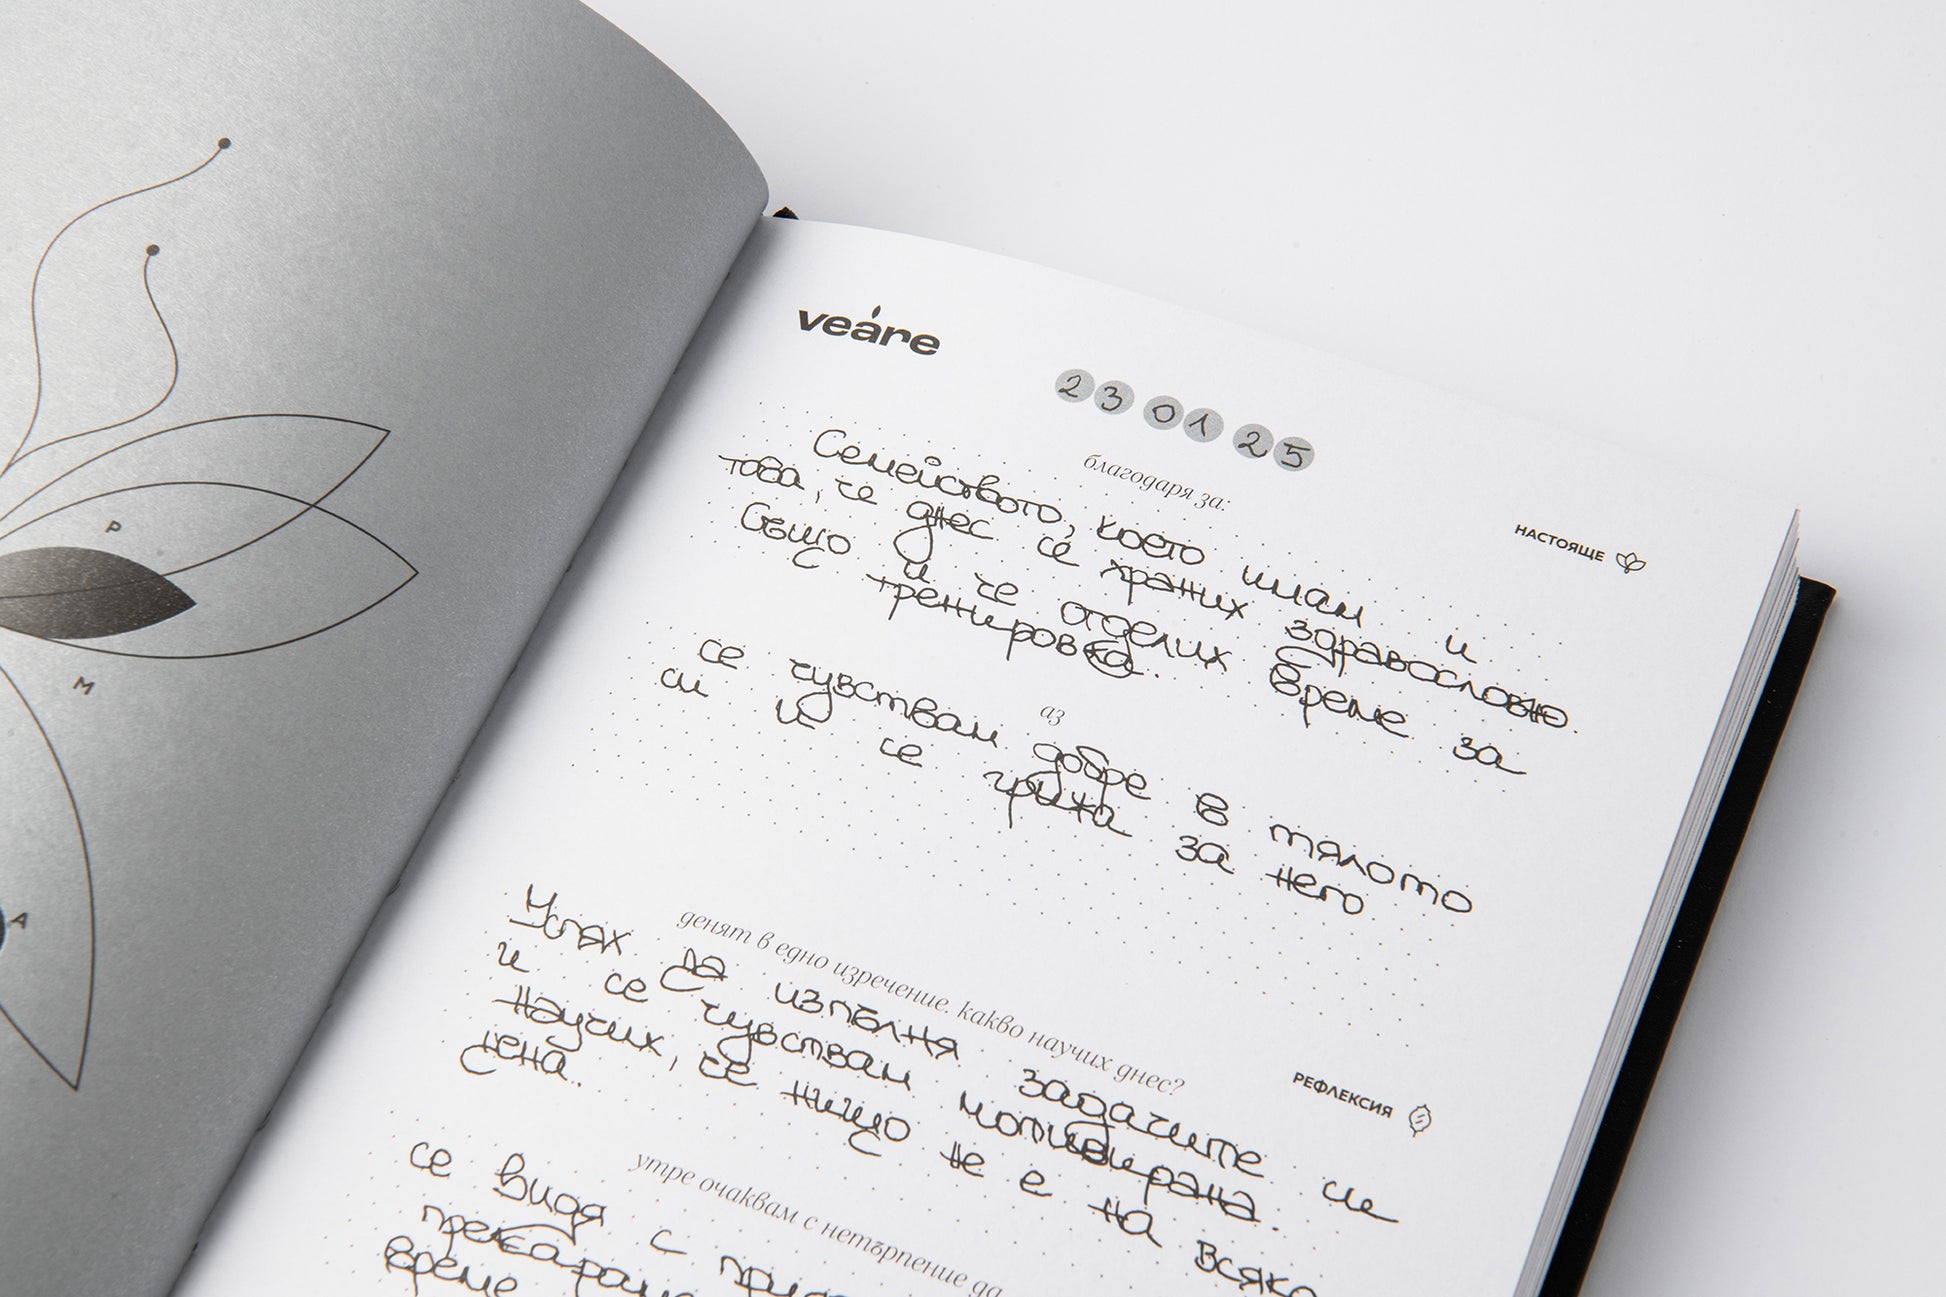 P
M
A
veare
23 01 25
благодаря за:
НАСТОЯЩЕ
Семейството, което имам и
това, че днес се храних здравословно.
Също и че отделих време за
тренировка.
аз
се чувствам добре в тялото
си и се грижа за него
денят в едно изречение. какво научих днес?
РЕФЛЕКСИЯ
Успях да изпълня задачите си
и се чувствам мотивирана.
Научих, че нищо не е на всяка
цена.
утре очаквам с нетърпение да
се видя с
време